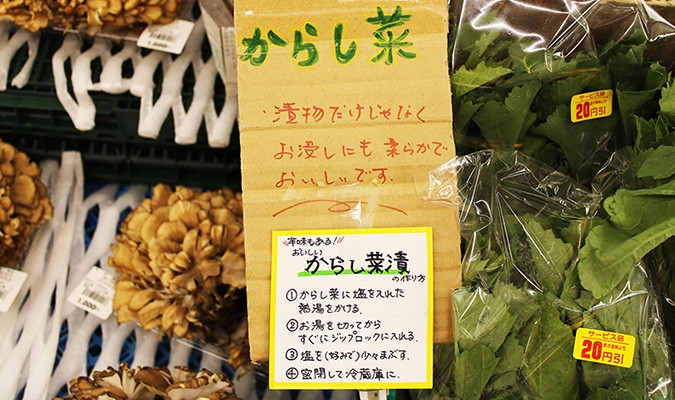 からし菜
漬物だけじゃなく
お浸しにも柔らかで
おいしいです.
辛味もある!!
おいしい
からし菜漬
の作り方
①からし菜に塩を入れた
熱湯をかける.
②お湯を切ってから
すぐにジップロックに入れる.
③塩を(好みで)少々まぶす.
④密閉して冷蔵庫に.
サービス品
表示価格より
20円引
サービス品
表示価格より
20円引
1,000-
1,000-